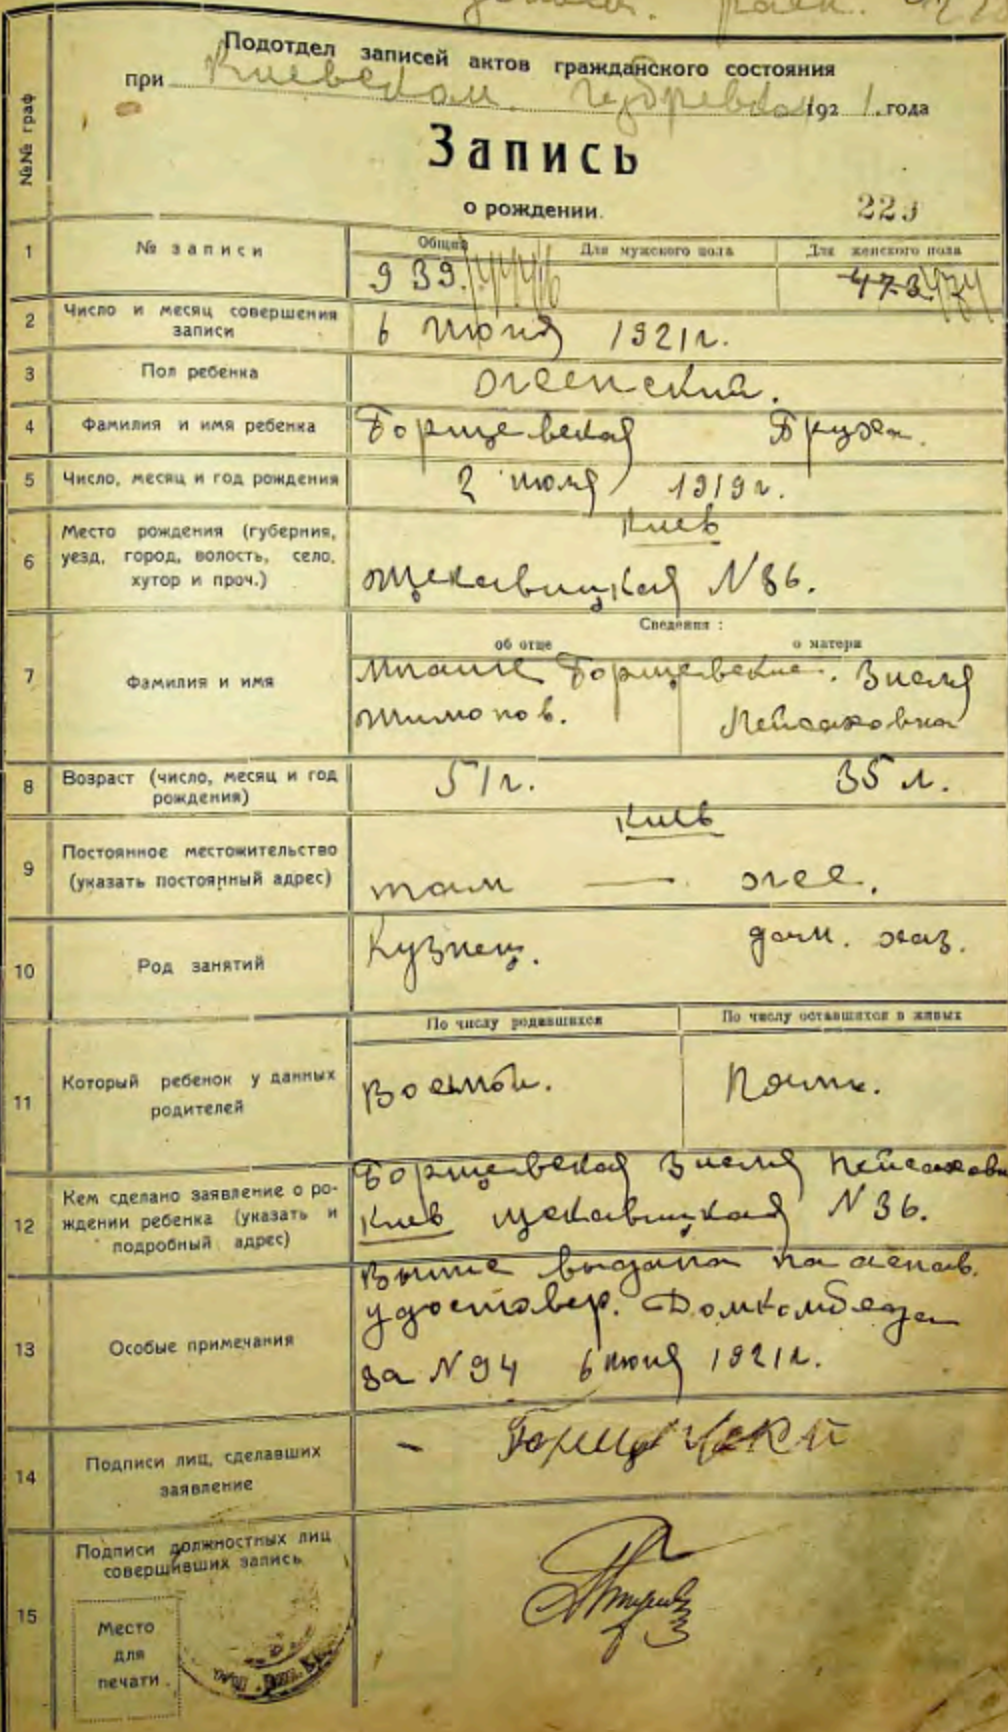 Подотдел записей актов гражданского состояния
при Киевском Губревком 1921. года
№№ граф
Запись
о рождении.
229
1 № записи
Общий Для мужского пола Для женского пола
939. 473. 474
2 Число и месяц совершения записи
6 июня 1921г.
3 Пол ребенка
женский.
4 Фамилия и имя ребенка
Борщевская Бруха.
5 Число, месяц и год рождения
2 июля 1919г.
6 Место рождения (губерния, уезд, город, волость, село, хутор и проч.)
Киев
Щекавицкая N36.
Сведения:
об отце о матери
7 Фамилия и имя
Борщевские. Зисля
Пейсаховна
8 Возраст (число, месяц и год рождения)
51г. 35 л.
9 Постоянное местожительство (указать постоянный адрес)
Киев
там — же.
10 Род занятий
Кузнец. дом. хоз.
По числу родившихся По числу оставшихся в живых
11 Который ребенок у данных родителей
Восьмой. Пятый.
12 Кем сделано заявление о рождении ребенка (указать и подробный адрес)
Борщевская Зисля Пейсаховн
Киев Щекавицкая N36.
13 Особые примечания
выдана на основ.
удостовер. Домкомбеда
за N94 6 июня 1921г.
14 Подписи лиц, сделавших заявление
— Борщевский
15 Подписи должностных лиц совершивших запись
Место
для
печати